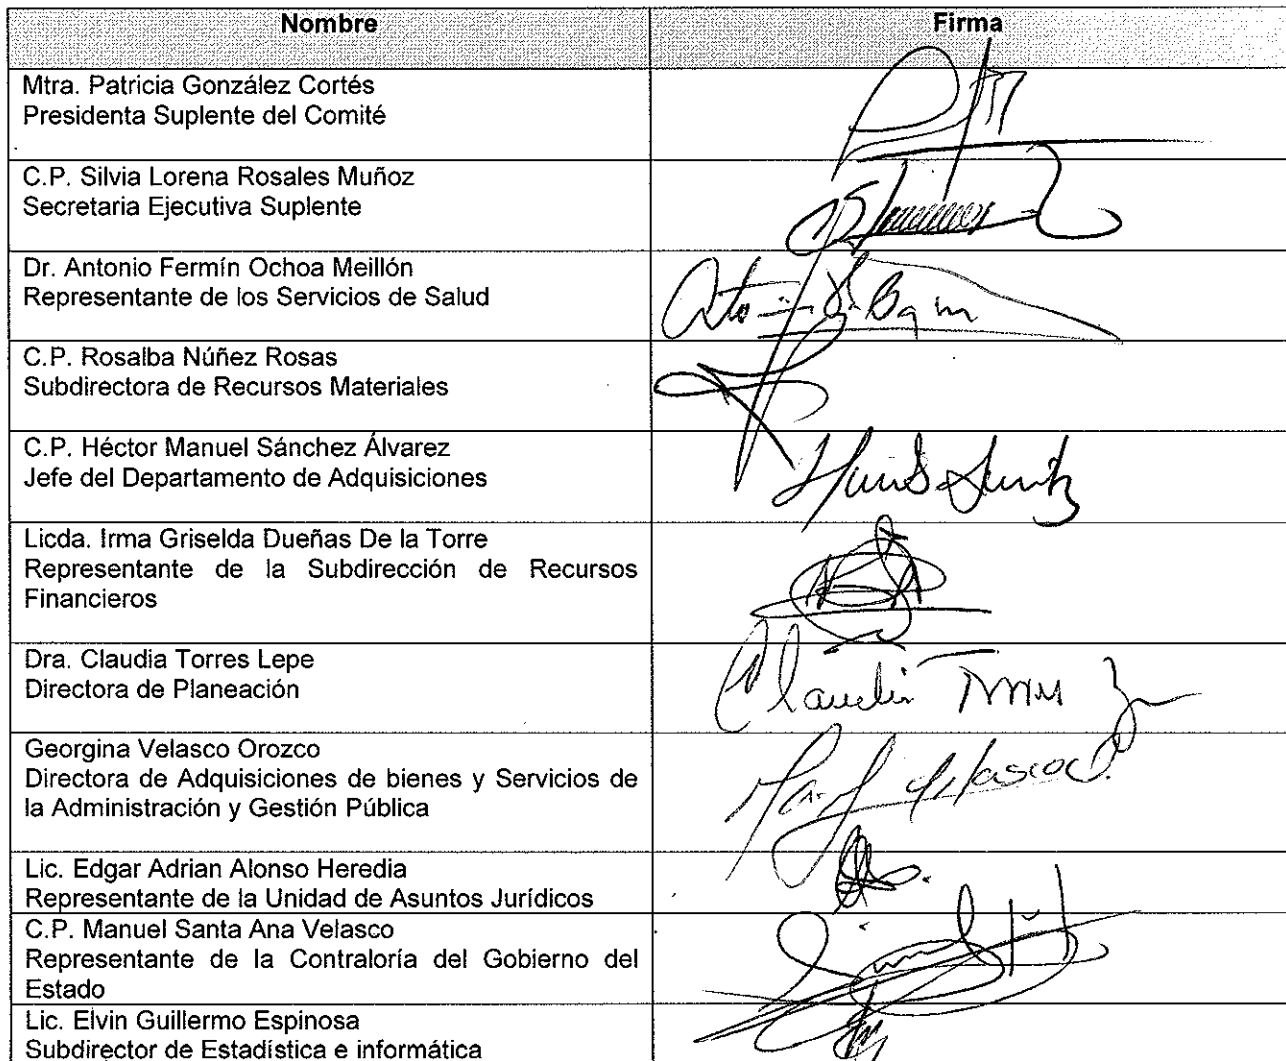 Nombre Firma
Mtra. Patricia González Cortés
Presidenta Suplente del Comité
C.P. Silvia Lorena Rosales Muñoz
Secretaria Ejecutiva Suplente
Dr. Antonio Fermín Ochoa Meillón
Representante de los Servicios de Salud
C.P. Rosalba Núñez Rosas
Subdirectora de Recursos Materiales
C.P. Héctor Manuel Sánchez Álvarez
Jefe del Departamento de Adquisiciones
Licda. Irma Griselda Dueñas De la Torre
Representante de la Subdirección de Recursos
Financieros
Dra. Claudia Torres Lepe
Directora de Planeación
Georgina Velasco Orozco
Directora de Adquisiciones de bienes y Servicios de
la Administración y Gestión Pública
Lic. Edgar Adrian Alonso Heredia
Representante de la Unidad de Asuntos Jurídicos
C.P. Manuel Santa Ana Velasco
Representante de la Contraloría del Gobierno del
Estado
Lic. Elvin Guillermo Espinosa
Subdirector de Estadística e informática